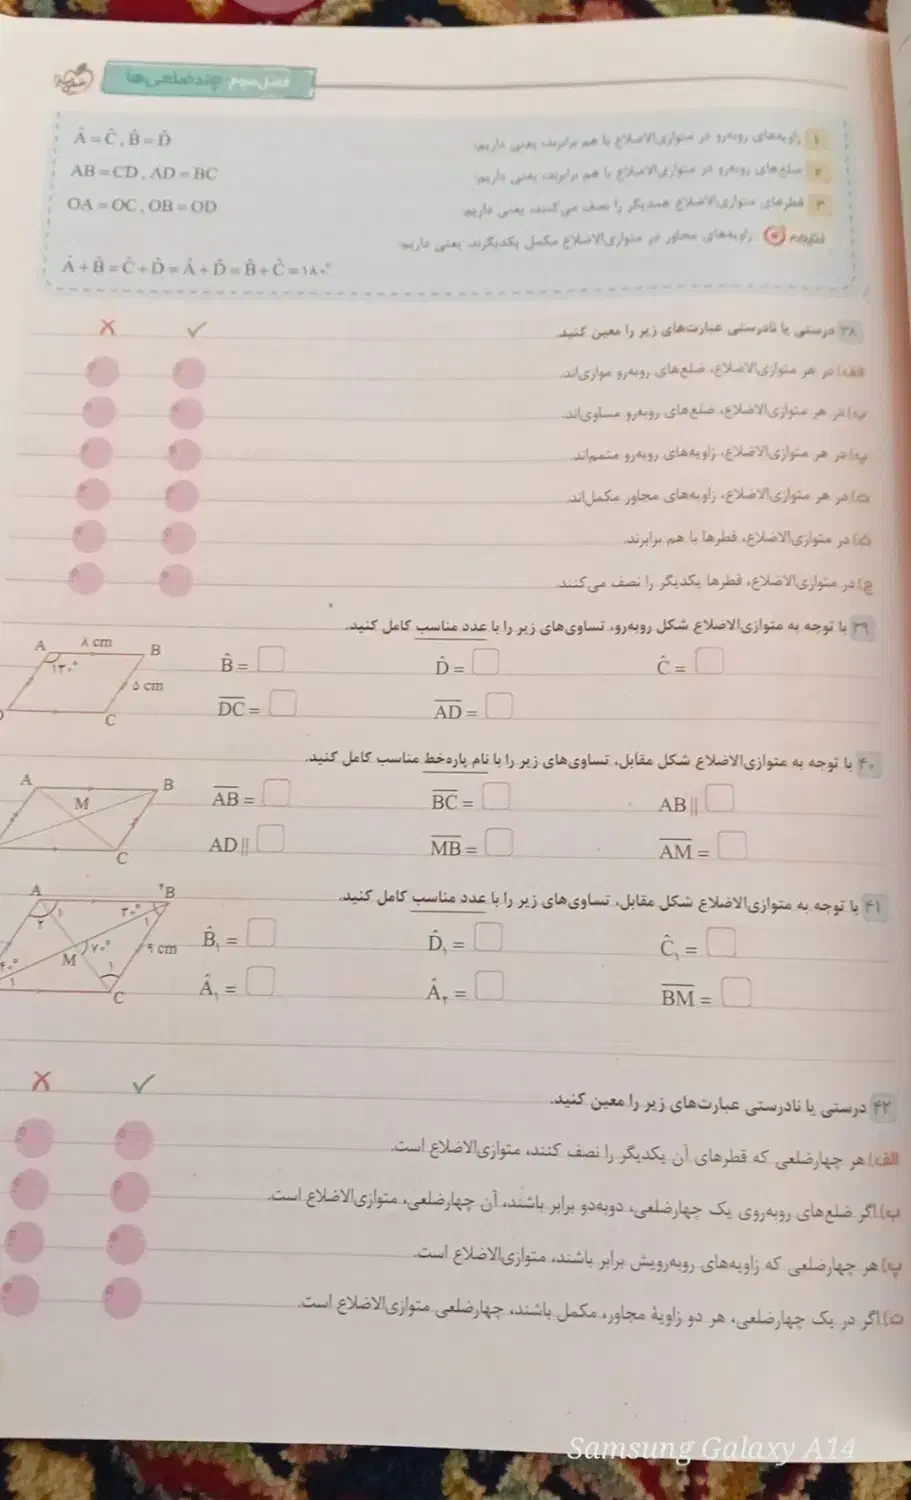 فصل سوم چندضلعی‌ها
۱ زاویه‌های روبه‌رو در متوازی‌الاضلاع با هم برابرند، یعنی داریم: Â = Ĉ , B̂ = D̂
۲ ضلع‌های روبه‌رو در متوازی‌الاضلاع با هم برابرند، یعنی داریم: AB = CD , AD = BC
۳ قطرهای متوازی‌الاضلاع همدیگر را نصف می‌کنند، یعنی داریم: OA = OC , OB = OD
نتیجه زاویه‌های مجاور در متوازی‌الاضلاع مکمل یکدیگرند، یعنی داریم:
Â + B̂ = Ĉ + D̂ = Â + D̂ = B̂ + Ĉ = ۱۸۰°
۳۸ درستی یا نادرستی عبارت‌های زیر را معین کنید. ✓ ✗
الف) در هر متوازی‌الاضلاع، ضلع‌های روبه‌رو موازی‌اند.
ب) در هر متوازی‌الاضلاع، ضلع‌های روبه‌رو مساوی‌اند.
پ) در هر متوازی‌الاضلاع، زاویه‌های روبه‌رو متمم‌اند.
ت) در هر متوازی‌الاضلاع، زاویه‌های مجاور مکمل‌اند.
ث) در متوازی‌الاضلاع، قطرها با هم برابرند.
ج) در متوازی‌الاضلاع، قطرها یکدیگر را نصف می‌کنند.
۳۹ با توجه به متوازی‌الاضلاع شکل روبه‌رو، تساوی‌های زیر را با عدد مناسب کامل کنید.
A ۸ cm B
۱۳۰°
۵ cm
C
B̂ = □ D̂ = □ Ĉ = □
DC = □ AD = □
۴۰ با توجه به متوازی‌الاضلاع شکل مقابل، تساوی‌های زیر را با نام پاره‌خط مناسب کامل کنید.
A B
M
C
AB = □ BC = □ AB || □
AD || □ MB = □ AM = □
۴۱ با توجه به متوازی‌الاضلاع شکل مقابل، تساوی‌های زیر را با عدد مناسب کامل کنید.
A ۲ B
۱ ۳۰° ۱
۲
۷۰° ۹ cm
M
۱ ۱
C
B̂₁ = □ D̂₁ = □ Ĉ₁ = □
Â₁ = □ Â₂ = □ BM = □
۴۲ درستی یا نادرستی عبارت‌های زیر را معین کنید. ✓ ✗
الف) هر چهارضلعی که قطرهای آن یکدیگر را نصف کنند، متوازی‌الاضلاع است.
ب) اگر ضلع‌های روبه‌روی یک چهارضلعی، دوبه‌دو برابر باشند، آن چهارضلعی، متوازی‌الاضلاع است.
پ) هر چهارضلعی که زاویه‌های روبه‌رویش برابر باشند، متوازی‌الاضلاع است.
ت) اگر در یک چهارضلعی، هر دو زاویهٔ مجاور، مکمل باشند، چهارضلعی متوازی‌الاضلاع است.
Samsung Galaxy A14